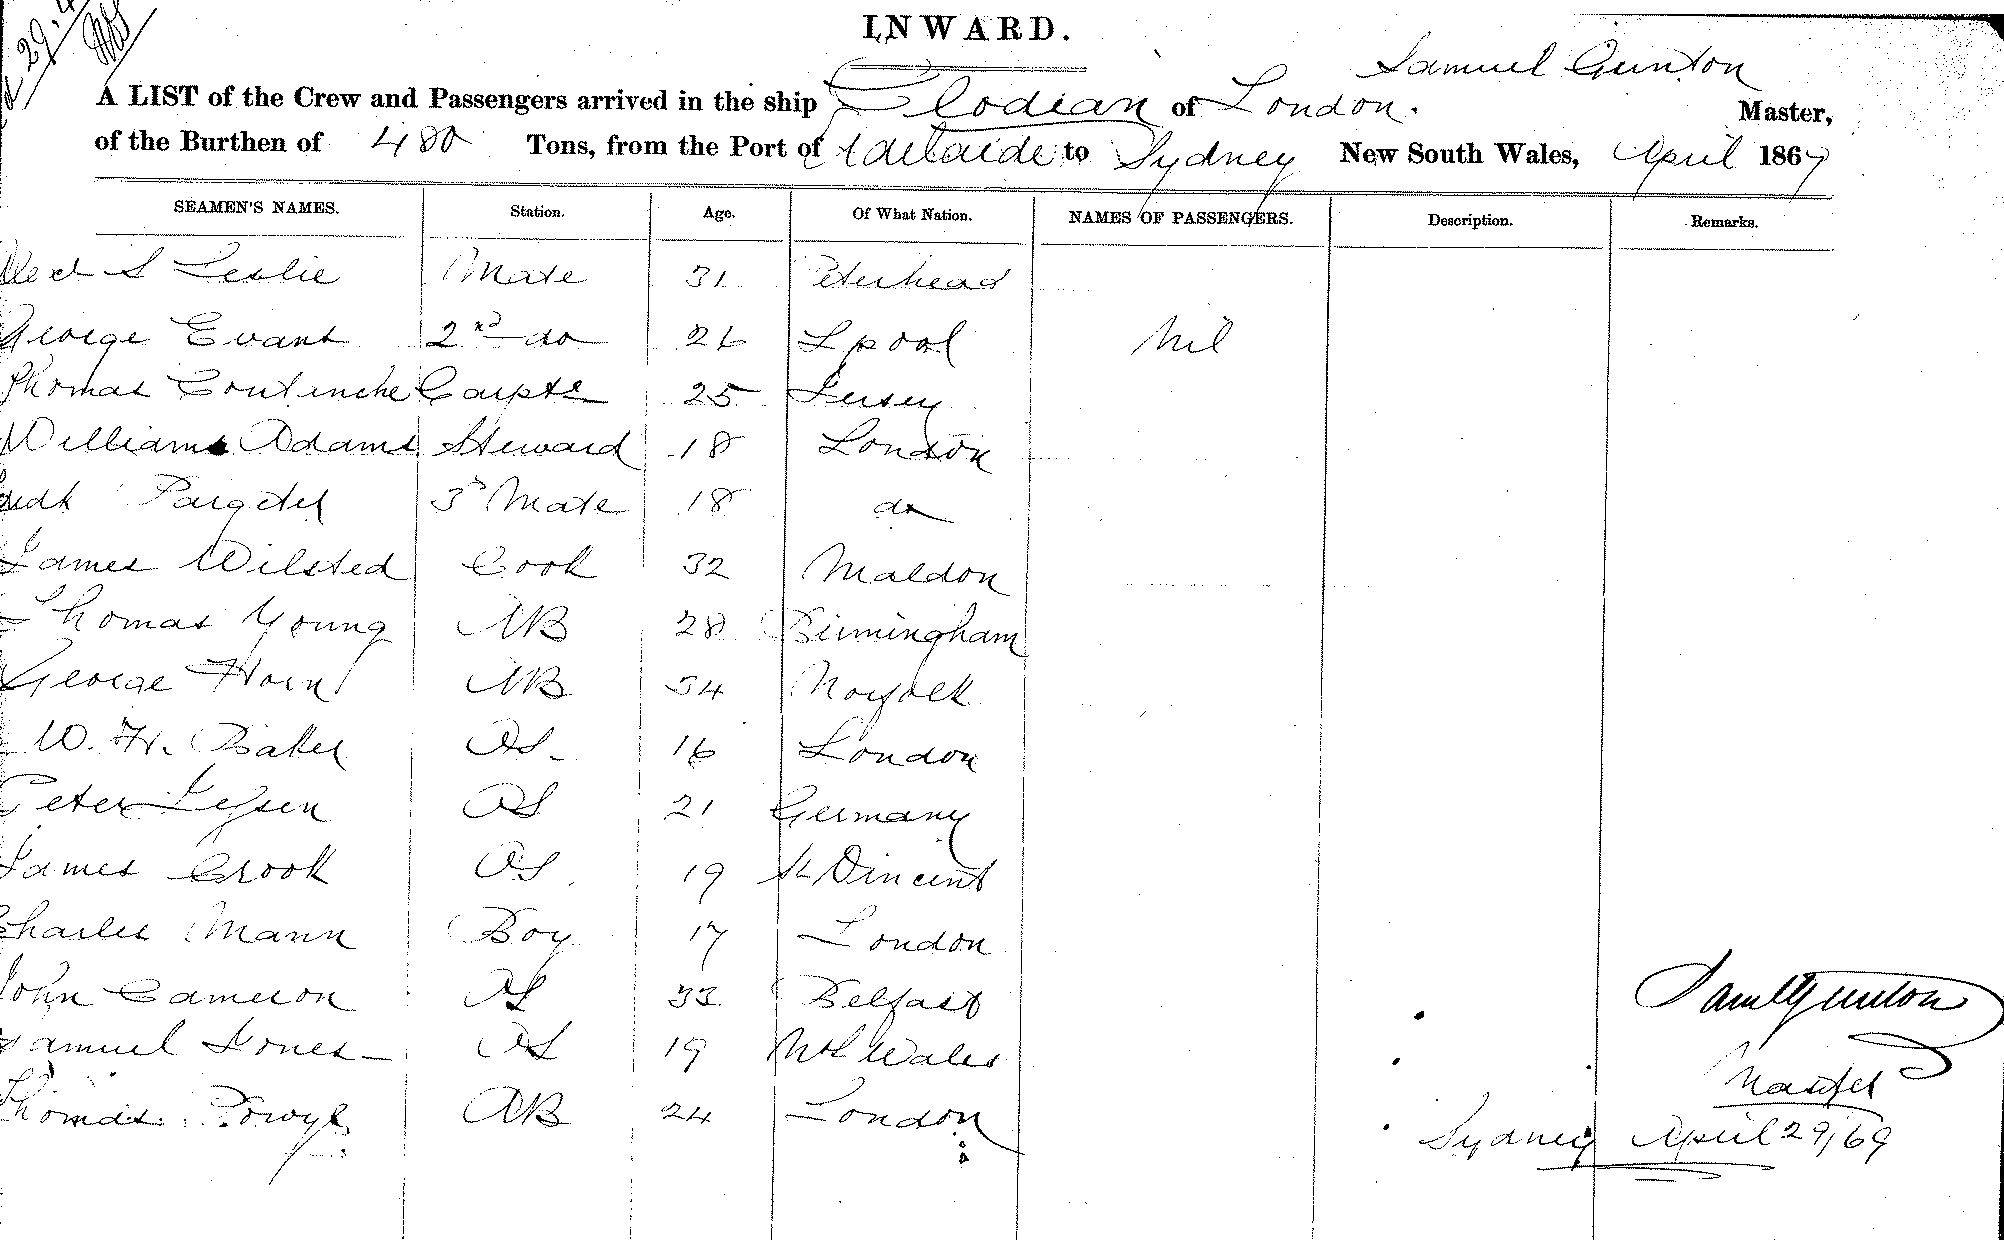 29.4
INWARD.
Samuel Gunton
A LIST of the Crew and Passengers arrived in the ship Clodian of London. Master,
of the Burthen of 480 Tons, from the Port of Adelaide to Sydney New South Wales, April 1869
SEAMEN'S NAMES. Station. Age. Of What Nation. NAMES OF PASSENGERS. Description. Remarks.
S Leslie Mate 31 Peterhead
George Evans 2nd do 26 Lpool Nil
Thomas Coutanche Carptr 25 Jersey
William Adams Steward 18 London
Pargeter 3d Mate 18 do
James Wilsted Cook 32 Maldon
Thomas Young AB 28 Birmingham
George Horn AB 34 Norfolk
W. H. Baker OS. 16 London
Peter OS 21 Germany
James Crook OS 19 St Vincent
Charles Mann Boy 17 London
John Cameron OS 33 Belfast
Samuel Jones OS 19 Wales
Thomas AB 24 London
Saml Gunton
Master
Sydney April 29/69